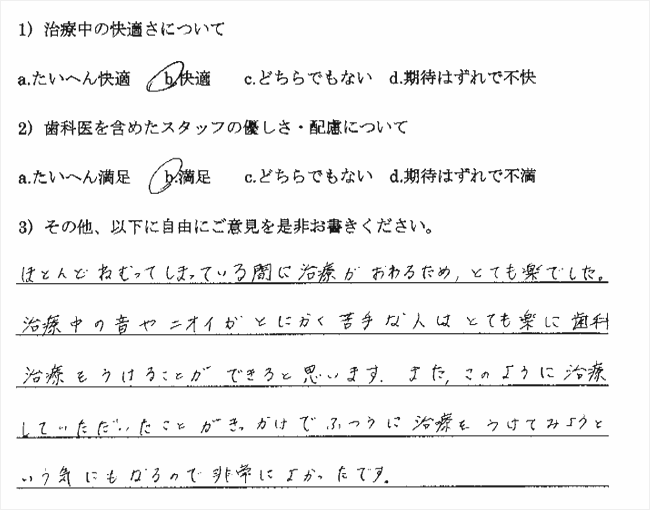 1) 治療中の快適さについて
a.たいへん快適 b.快適 c.どちらでもない d.期待はずれで不快
2) 歯科医を含めたスタッフの優しさ・配慮について
a.たいへん満足 b.満足 c.どちらでもない d.期待はずれで不満
3) その他、以下に自由にご意見を是非お書きください。
ほとんどねむってしまっている間に治療がおわるため，とても楽でした。
治療中の音やニオイがとにかく苦手な人はとても楽に歯科
治療をうけることができると思います．また，このように治療
していただいたことがきっかけでふつうに治療をうけてみようと
いう気にもなるので非常によかったです。